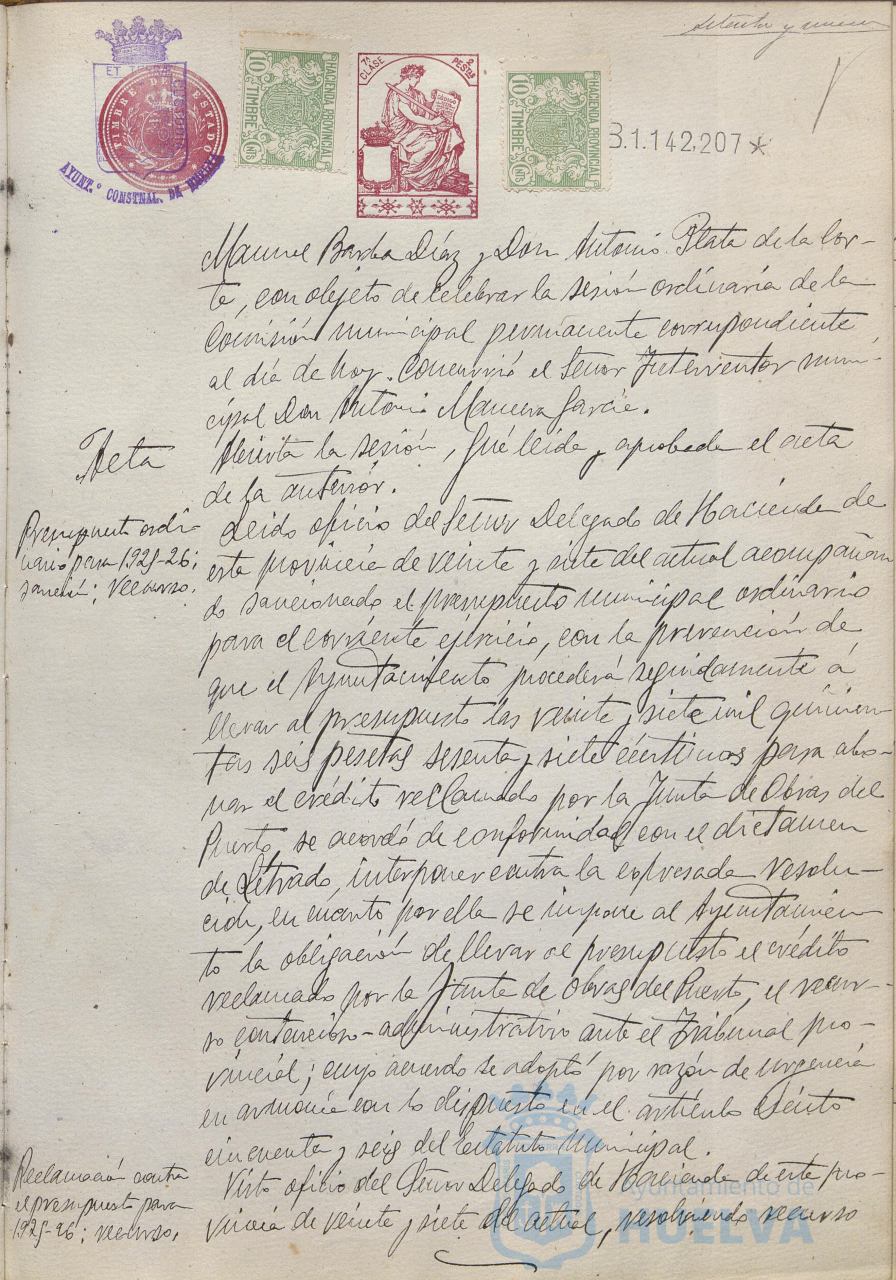 setenta y nueve
ET TERRÆ CUSTODIA
TIMBRE DEL ESTADO
AYUNT.º CONSTNAL. DE HUELVA
10 Cts TIMBRE HACIENDA PROVINCIAL
7ª CLASE 2 PESTAS
10 Cts TIMBRE HACIENDA PROVINCIAL
B.1.142,207*
Manuel Barba Díaz y Don Antonio Plata de la Cor-
te, con objeto de celebrar la sesión ordinaria de la
Comisión municipal permanente correspondiente
al día de hoy. Concurrió el Señor Interventor muni-
cipal Don Antonio Mancera García.
Acta
Abierta la sesión, fué leída y aprobada el acta
de la anterior.
Presupuesto ordi-
nario para 1925-26;
sanción; recurso.
Leido oficio del Señor Delegado de Hacienda de
esta provincia de veinte y siete del actual acompañan
do sancionado el presupuesto municipal ordinario
para el corriente ejercicio, con la prevención de
que el Ayuntamiento procederá seguidamente á
llevar al presupuesto las veinte y siete mil quinien
tas seis pesetas sesenta y siete céntimos para abo-
nar el crédito reclamado por la Junta de Obras del
Puerto, se acordó de conformidad con el dictamen
de Letrado, interponer contra la expresada resolu-
ción, en cuanto por ella se impone al Ayuntamien
to la obligación de llevar al presupuesto el crédito
reclamado por la Junta de Obras del Puerto, el recur-
so contencioso-administrativo ante el Tribunal pro-
vincial; cuyo acuerdo se adoptó por razón de urgencia
en armonía con lo dispuesto en el artículo ciento
cincuenta y seis del Estatuto Municipal.
Reclamación contra
el presupuesto para
1925-26; recurso.
Visto oficio del Señor Delegado de Hacienda de esta pro-
vincia de veinte y siete del actual, resolviendo recurso
Ayuntamiento de
HUELVA